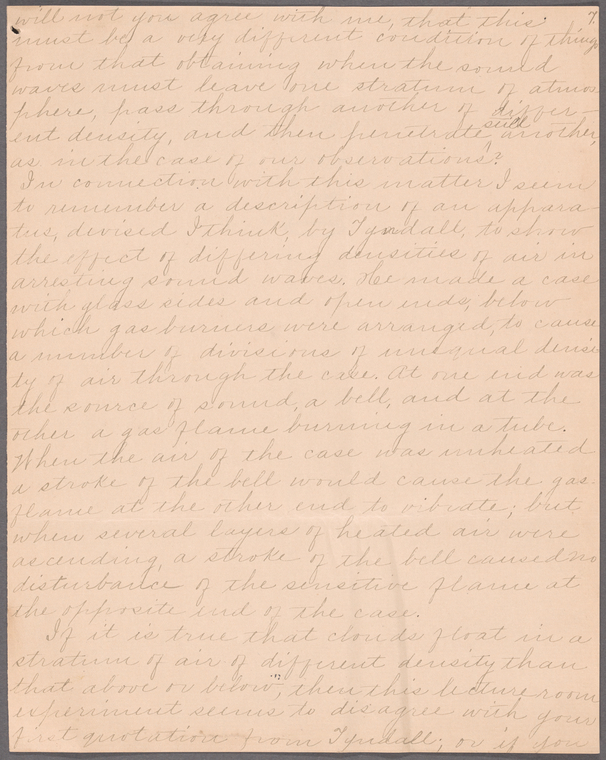 7.
will not you agree with me, that this
must be a very different condition of things
from that obtaining when the sound
waves must leave one stratum of atmos-
phere, pass through another of differ-
ent density, and then penetrate still another,
as in the case of our observations?
In connection with this matter I seem
to remember a description of an appara-
tus, devised I think, by Tyndall, to show
the effect of differing densities of air in
arresting sound waves. He made a case
with glass sides and open ends, below
which gas burners were arranged, to cause
a number of divisions of unequal densi-
ty of air through the case. At one end was
the source of sound, a bell, and at the
other a gas flame burning in a tube.
When the air of the case was unheated
a stroke of the bell would cause the gas-
flame at the other end to vibrate; but
when several layers of heated air were
ascending, a stroke of the bell caused no
disturbance of the sensitive flame at
the opposite end of the case.
If it is true that clouds float in a
stratum of air of different density than
that above or below, then this lecture room
experiment seems to disagree with your
first quotation from Tyndall; or if you